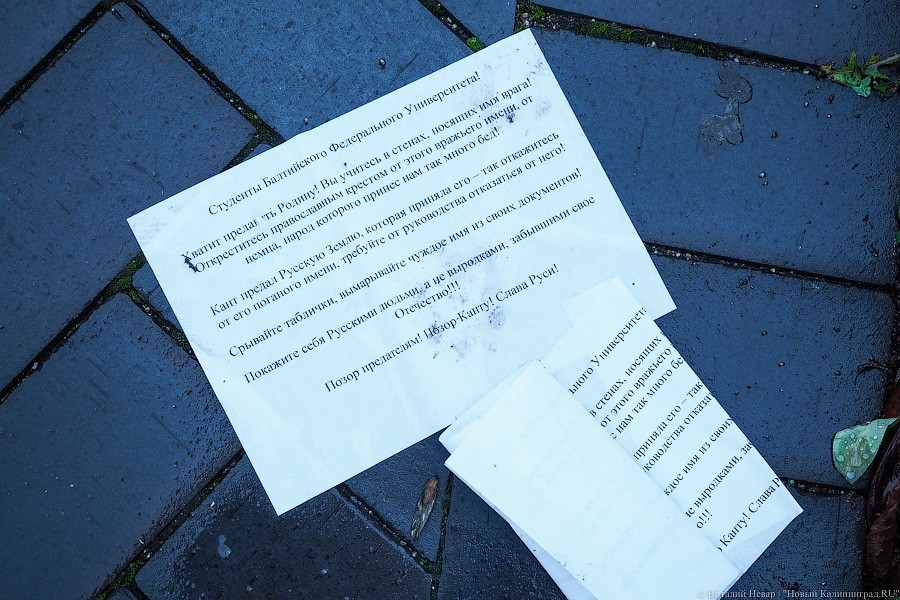 Студенты Балтийского Федерального Университета!
Хватит предавать Родину! Вы учитесь в стенах, носящих имя врага!
Откреститесь православным крестом от этого вражьего имени, от
немца, народ которого принес нам так много бед!
Кант предал Русскую Землю, которая приняла его – так откажитесь
от его поганого имени, требуйте от руководства отказаться от него!
Срывайте таблички, вымарывайте чуждое имя из своих документов!
Покажите себя Русскими людьми, а не выродками, забывшими свое
Отечество!!!
Позор предателям! Позор Канту! Слава Руси!
льного Университета
в стенах, носящих
от этого вражьего
нам так много бе
приняла его – так
ководства отказа
ждое имя из своих
не выродками, за
о!!!
Канту! Слава Р
© Виталий Невар | "Новый Калининград.RU"